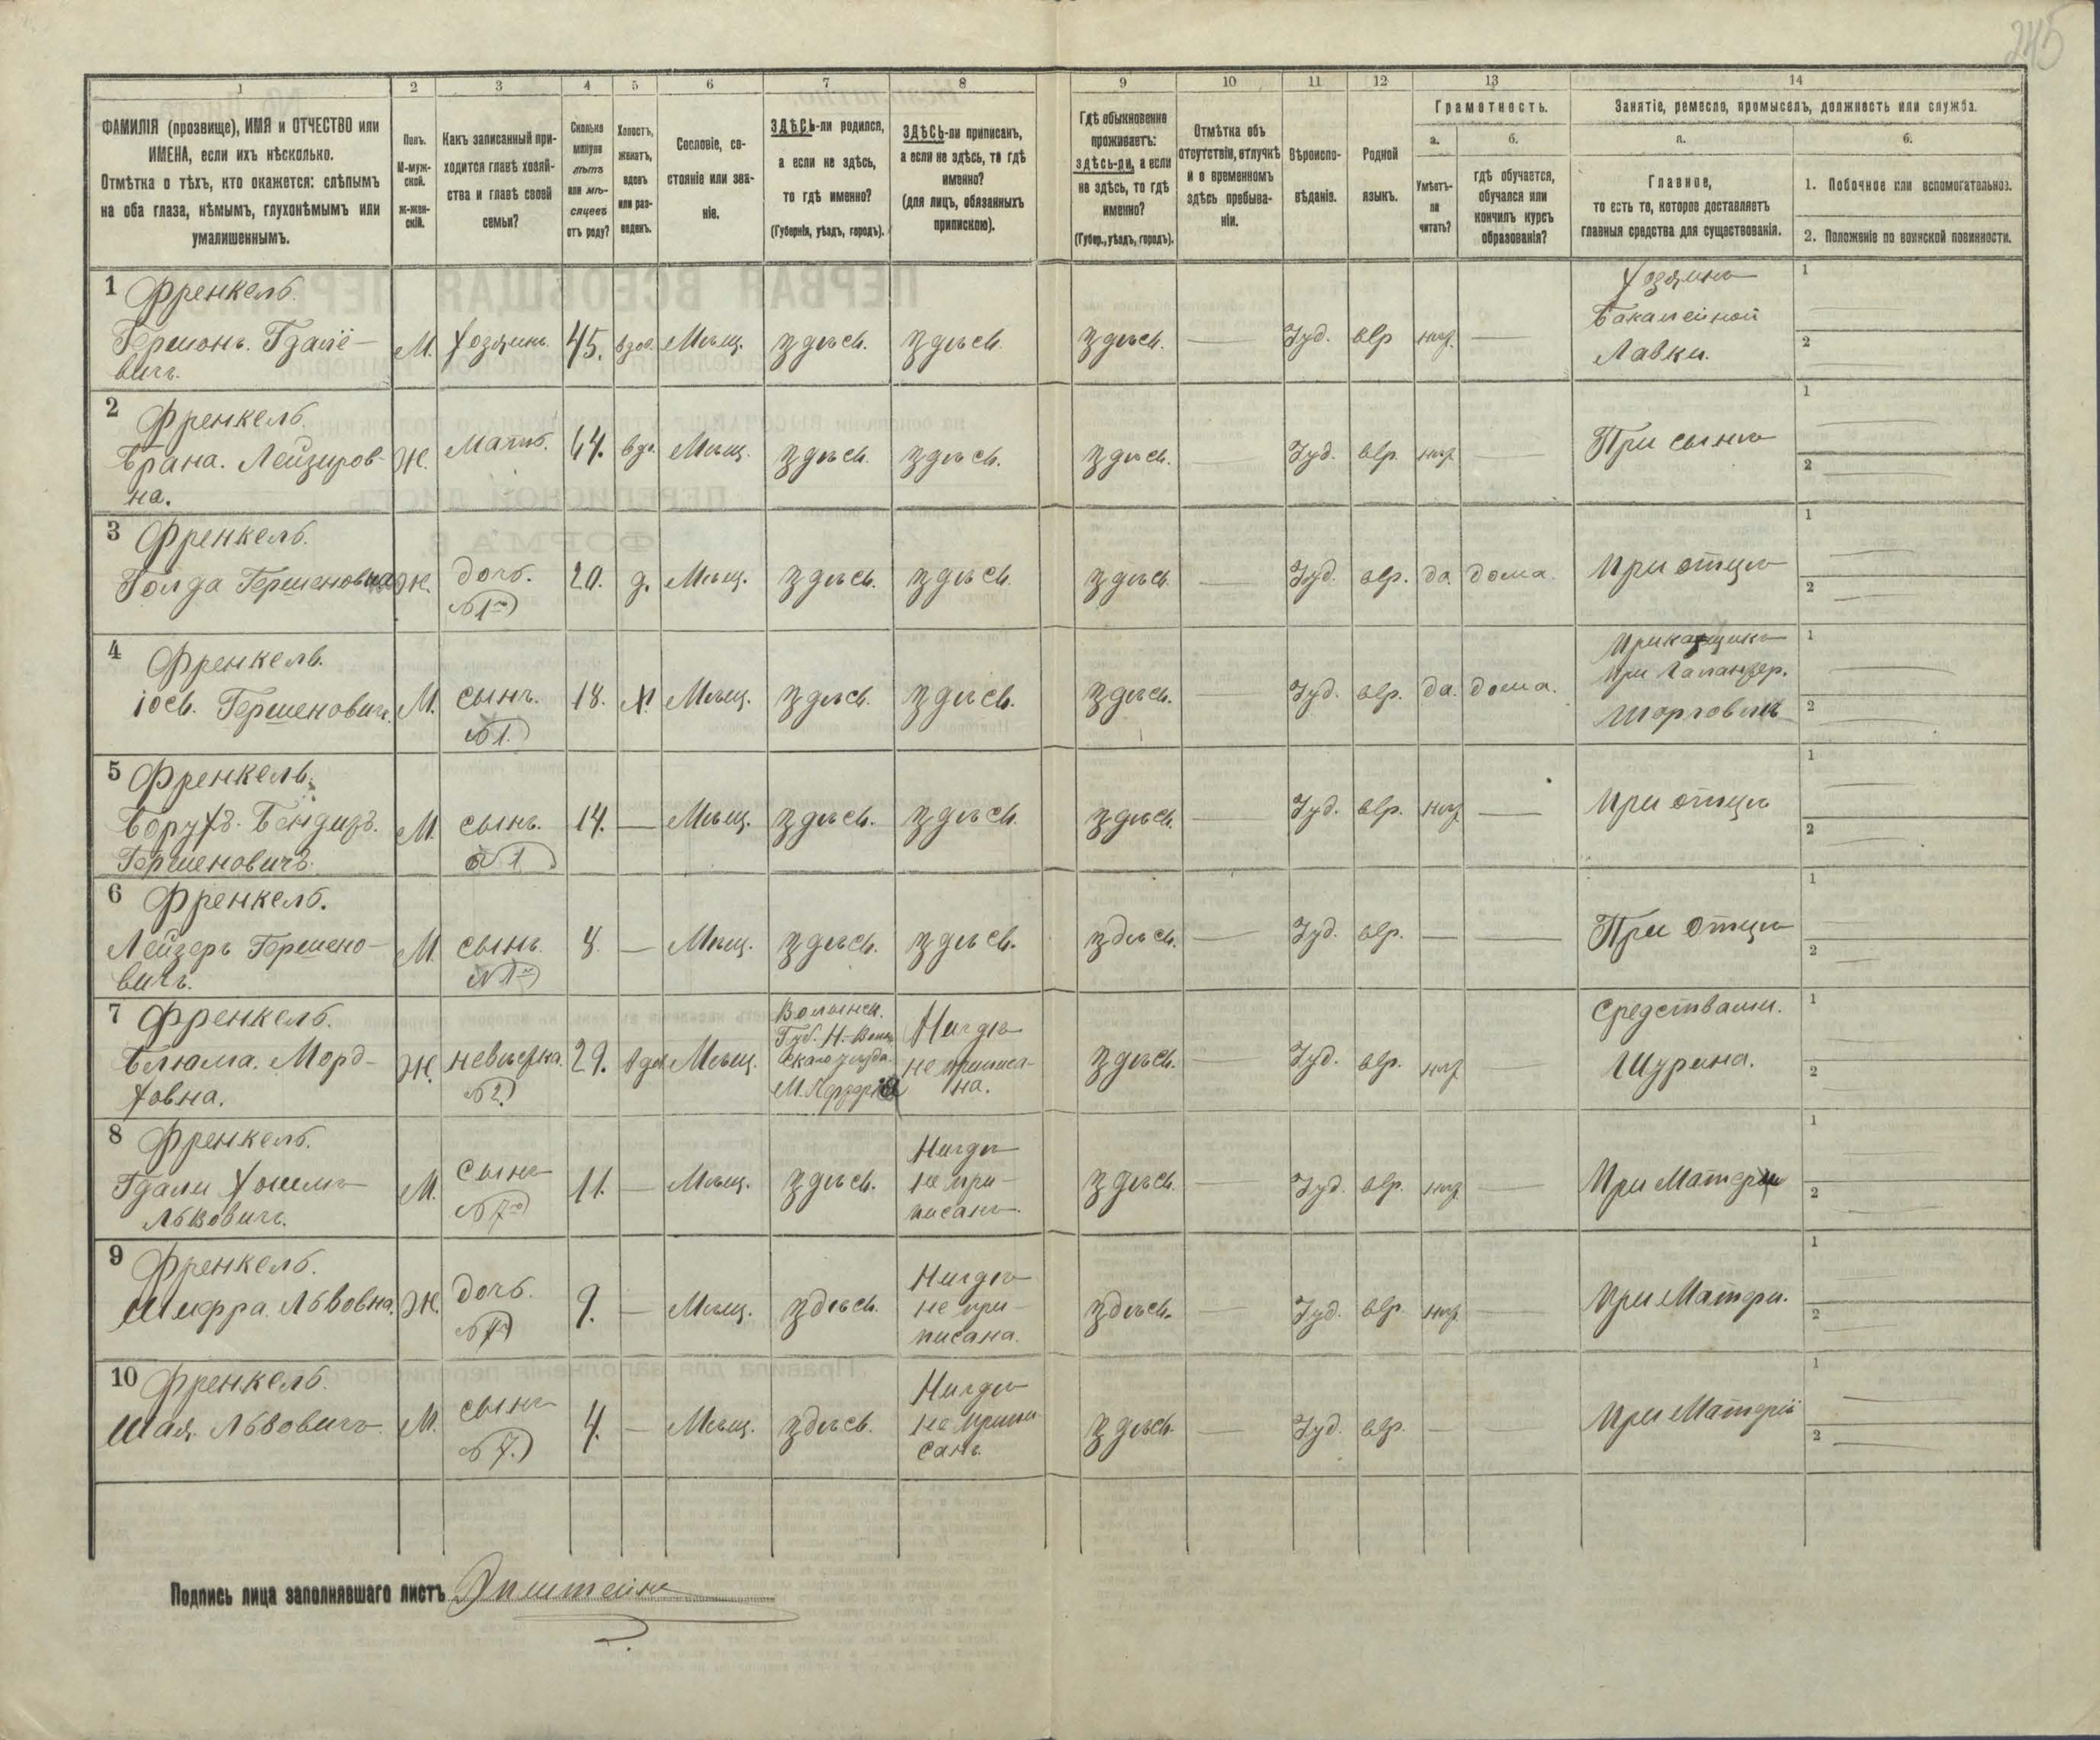 245
1 2 3 4 5 6 7 8 9 10 11 12 13 14
ФАМИЛІЯ (прозвище), ИМЯ и ОТЧЕСТВО или
ИМЕНА, если ихъ нѣсколько.
Отмѣтка о тѣхъ, кто окажется: слѣпымъ
на оба глаза, нѣмымъ, глухонѣмымъ или
умалишеннымъ.
Полъ.
М-муж-
ской.
Ж-жен-
скій.
Какъ записанный при-
ходится главѣ хозяй-
ства и главѣ своей
семьи?
Сколько
минуло
лѣтъ
или мѣ-
сяцевъ
отъ роду?
Холостъ,
женатъ,
вдовъ
или раз-
веденъ.
Сословіе, со-
стояніе или зва-
ніе.
ЗДѢСЬ-ли родился,
а если не здѣсь,
то гдѣ именно?
(Губернія, уѣздъ, городъ).
ЗДѢСЬ-ли приписанъ,
а если не здѣсь, то гдѣ
именно?
(для лицъ, обязанныхъ
припискою).
Гдѣ обыкновенно
проживаетъ:
здѣсь-ли, а если
не здѣсь, то гдѣ
именно?
(Губер., уѣздъ, городъ).
Отмѣтка объ
отсутствіи, отлучкѣ
и о временномъ
здѣсь пребыва-
ніи.
Вѣроиспо-
вѣданіе.
Родной
языкъ.
Грамотность.
а.
Умѣетъ-
ли
читать?
б.
гдѣ обучается,
обучался или
кончилъ курсъ
образованія?
Занятіе, ремесло, промыселъ, должность или служба.
а.
Главное,
то есть то, которое доставляетъ
главныя средства для существованія.
б.
1. Побочное или вспомогательное.
2. Положеніе по воинской повинности.
1 Френкель.
Гершонъ. Гдалё-
вичъ.
М. Хозяинъ. 45. вдов. Мѣщ. здѣсь. здѣсь. здѣсь. — Іуд. евр. нѣт. —
Хозяинъ
Бакалейной
Лавки.
1
2
2 Френкель.
Брана. Лейзиров-
на.
Ж. мать. 64. вдо. Мѣщ. здѣсь. здѣсь. здѣсь. — Іуд. евр. нѣт. — При сынѣ
1
2
3 Френкель.
Голда Гершеновна
Ж. дочь. 20. д. Мѣщ. здѣсь. здѣсь. здѣсь — Іуд. евр. да. дома. при отцѣ
№1го
1
2
4 Френкель.
іось. Гершеновичъ.
М. сынъ. 18. х. Мѣщ. здѣсь. здѣсь. здѣсь. — Іуд. евр. да. дома.
№1.
прикащикъ
при галантер.
торговлѣ
1
2
5 Френкель.
Борухъ. Бендитъ.
Гершеновичъ.
М. сынъ. 14. — Мѣщ. здѣсь. здѣсь. здѣсь. — Іуд. евр. нѣт — при отцѣ
№1
1
2
6 Френкель.
Лейзеръ Гершено-
вичъ.
М. сынъ. 8. — Мѣщ. здѣсь. здѣсь. здѣсь. — Іуд. евр. — — При отцѣ
№1го
1
2
7 Френкель.
Блюма. Морд-
ховна.
Ж. невѣстка. 29. вдов Мѣщ.
№2.
Волынск.
Губ. Н. Волын
скаго уѣзда
Нигдѣ
не приписа-
на.
здѣсь. — Іуд. евр. нѣт —
средствами.
Шурина.
1
2
8 Френкель.
Гдали Хошмъ
Львовичъ.
М. Сынъ 11. — Мѣщ. здѣсь.
№7го
Нигдѣ
не при-
писанъ.
здѣсь. — Іуд. евр. нѣт — при Матери
1
2
9 Френкель.
Шифра. Львовна.
Ж. дочь. 9. — Мѣщ. здѣсь.
№7
Нигдѣ
не при-
писана.
здѣсь. — Іуд. евр. нѣт — при Матери.
1
2
10 Френкель.
Шая. Львовичъ
М. сынъ 4. — Мѣщ. здѣсь.
№7.
Нигдѣ
не припи
санъ.
здѣсь. — Іуд. евр. — — при Матеріи
1
2
Подпись лица заполнявшаго листъ Эпштейнъ